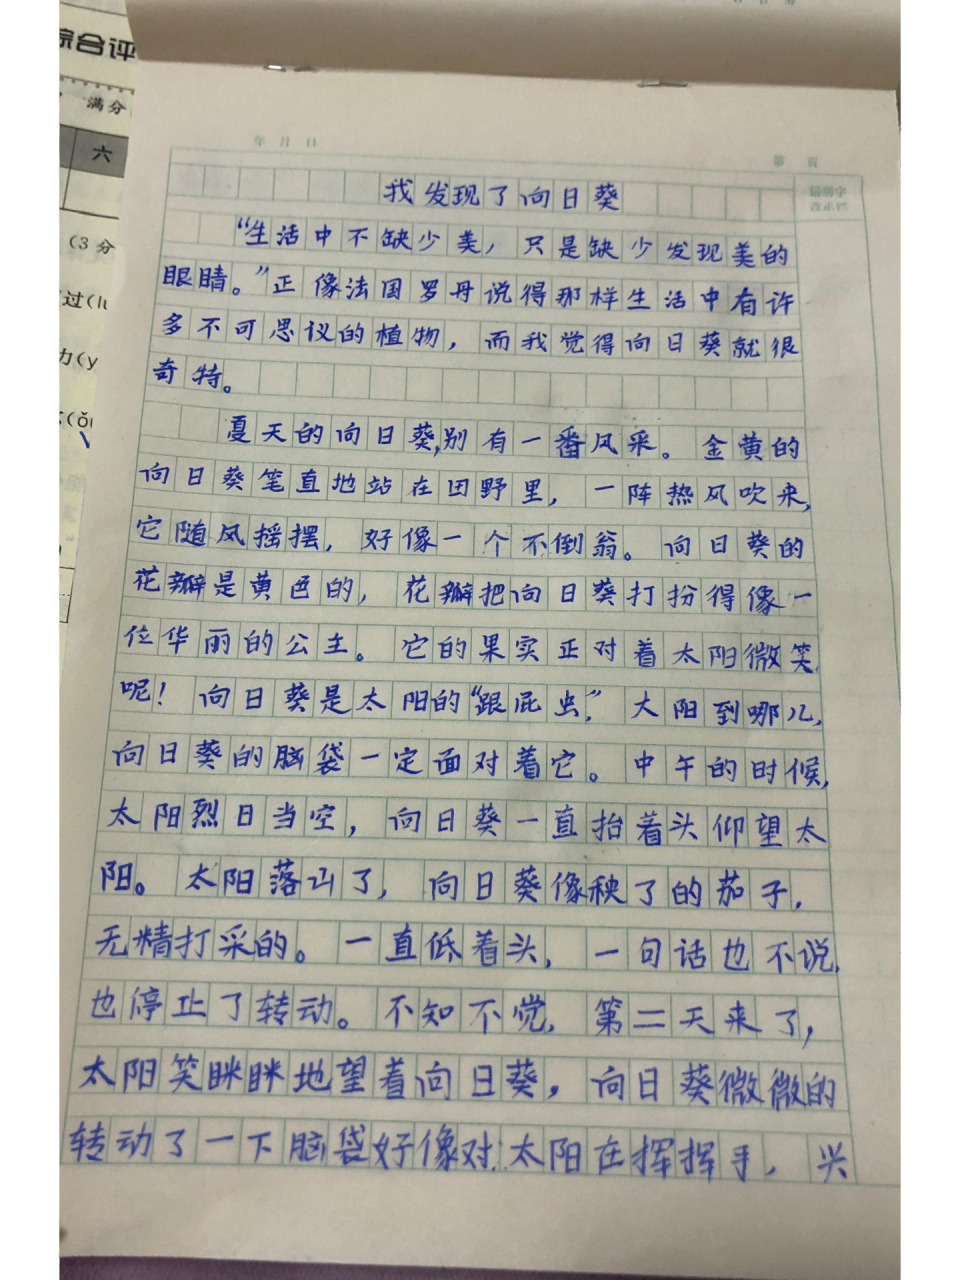 综合评
满分
六
(3分
过(lu
力(y
(ǒu
年 月 日
第 页
错别字
改正栏
我发现了向日葵
“生活中不缺少美，只是缺少发现美的
眼睛。”正像法国罗丹说得那样生活中有许
多不可思议的植物，而我觉得向日葵就很
奇特。
夏天的向日葵,别有一番风采。金黄的
向日葵笔直地站在田野里，一阵热风吹来,
它随风摇摆，好像一个不倒翁。向日葵的
花瓣是黄色的，花瓣把向日葵打扮得像一
位华丽的公主。它的果实正对着太阳微笑
呢！向日葵是太阳的“跟屁虫”，大阳到哪儿,
向日葵的脑袋一定面对着它。中午的时候,
太阳烈日当空，向日葵一直抬着头仰望太
阳。太阳落山了，向日葵像秧了的茄子,
无精打采的。一直低着头，一句话也不说,
也停止了转动。不知不觉，第二天来了，
太阳笑眯眯地望着向日葵，向日葵微微的
转动了一下脑袋好像对太阳在挥挥手，兴